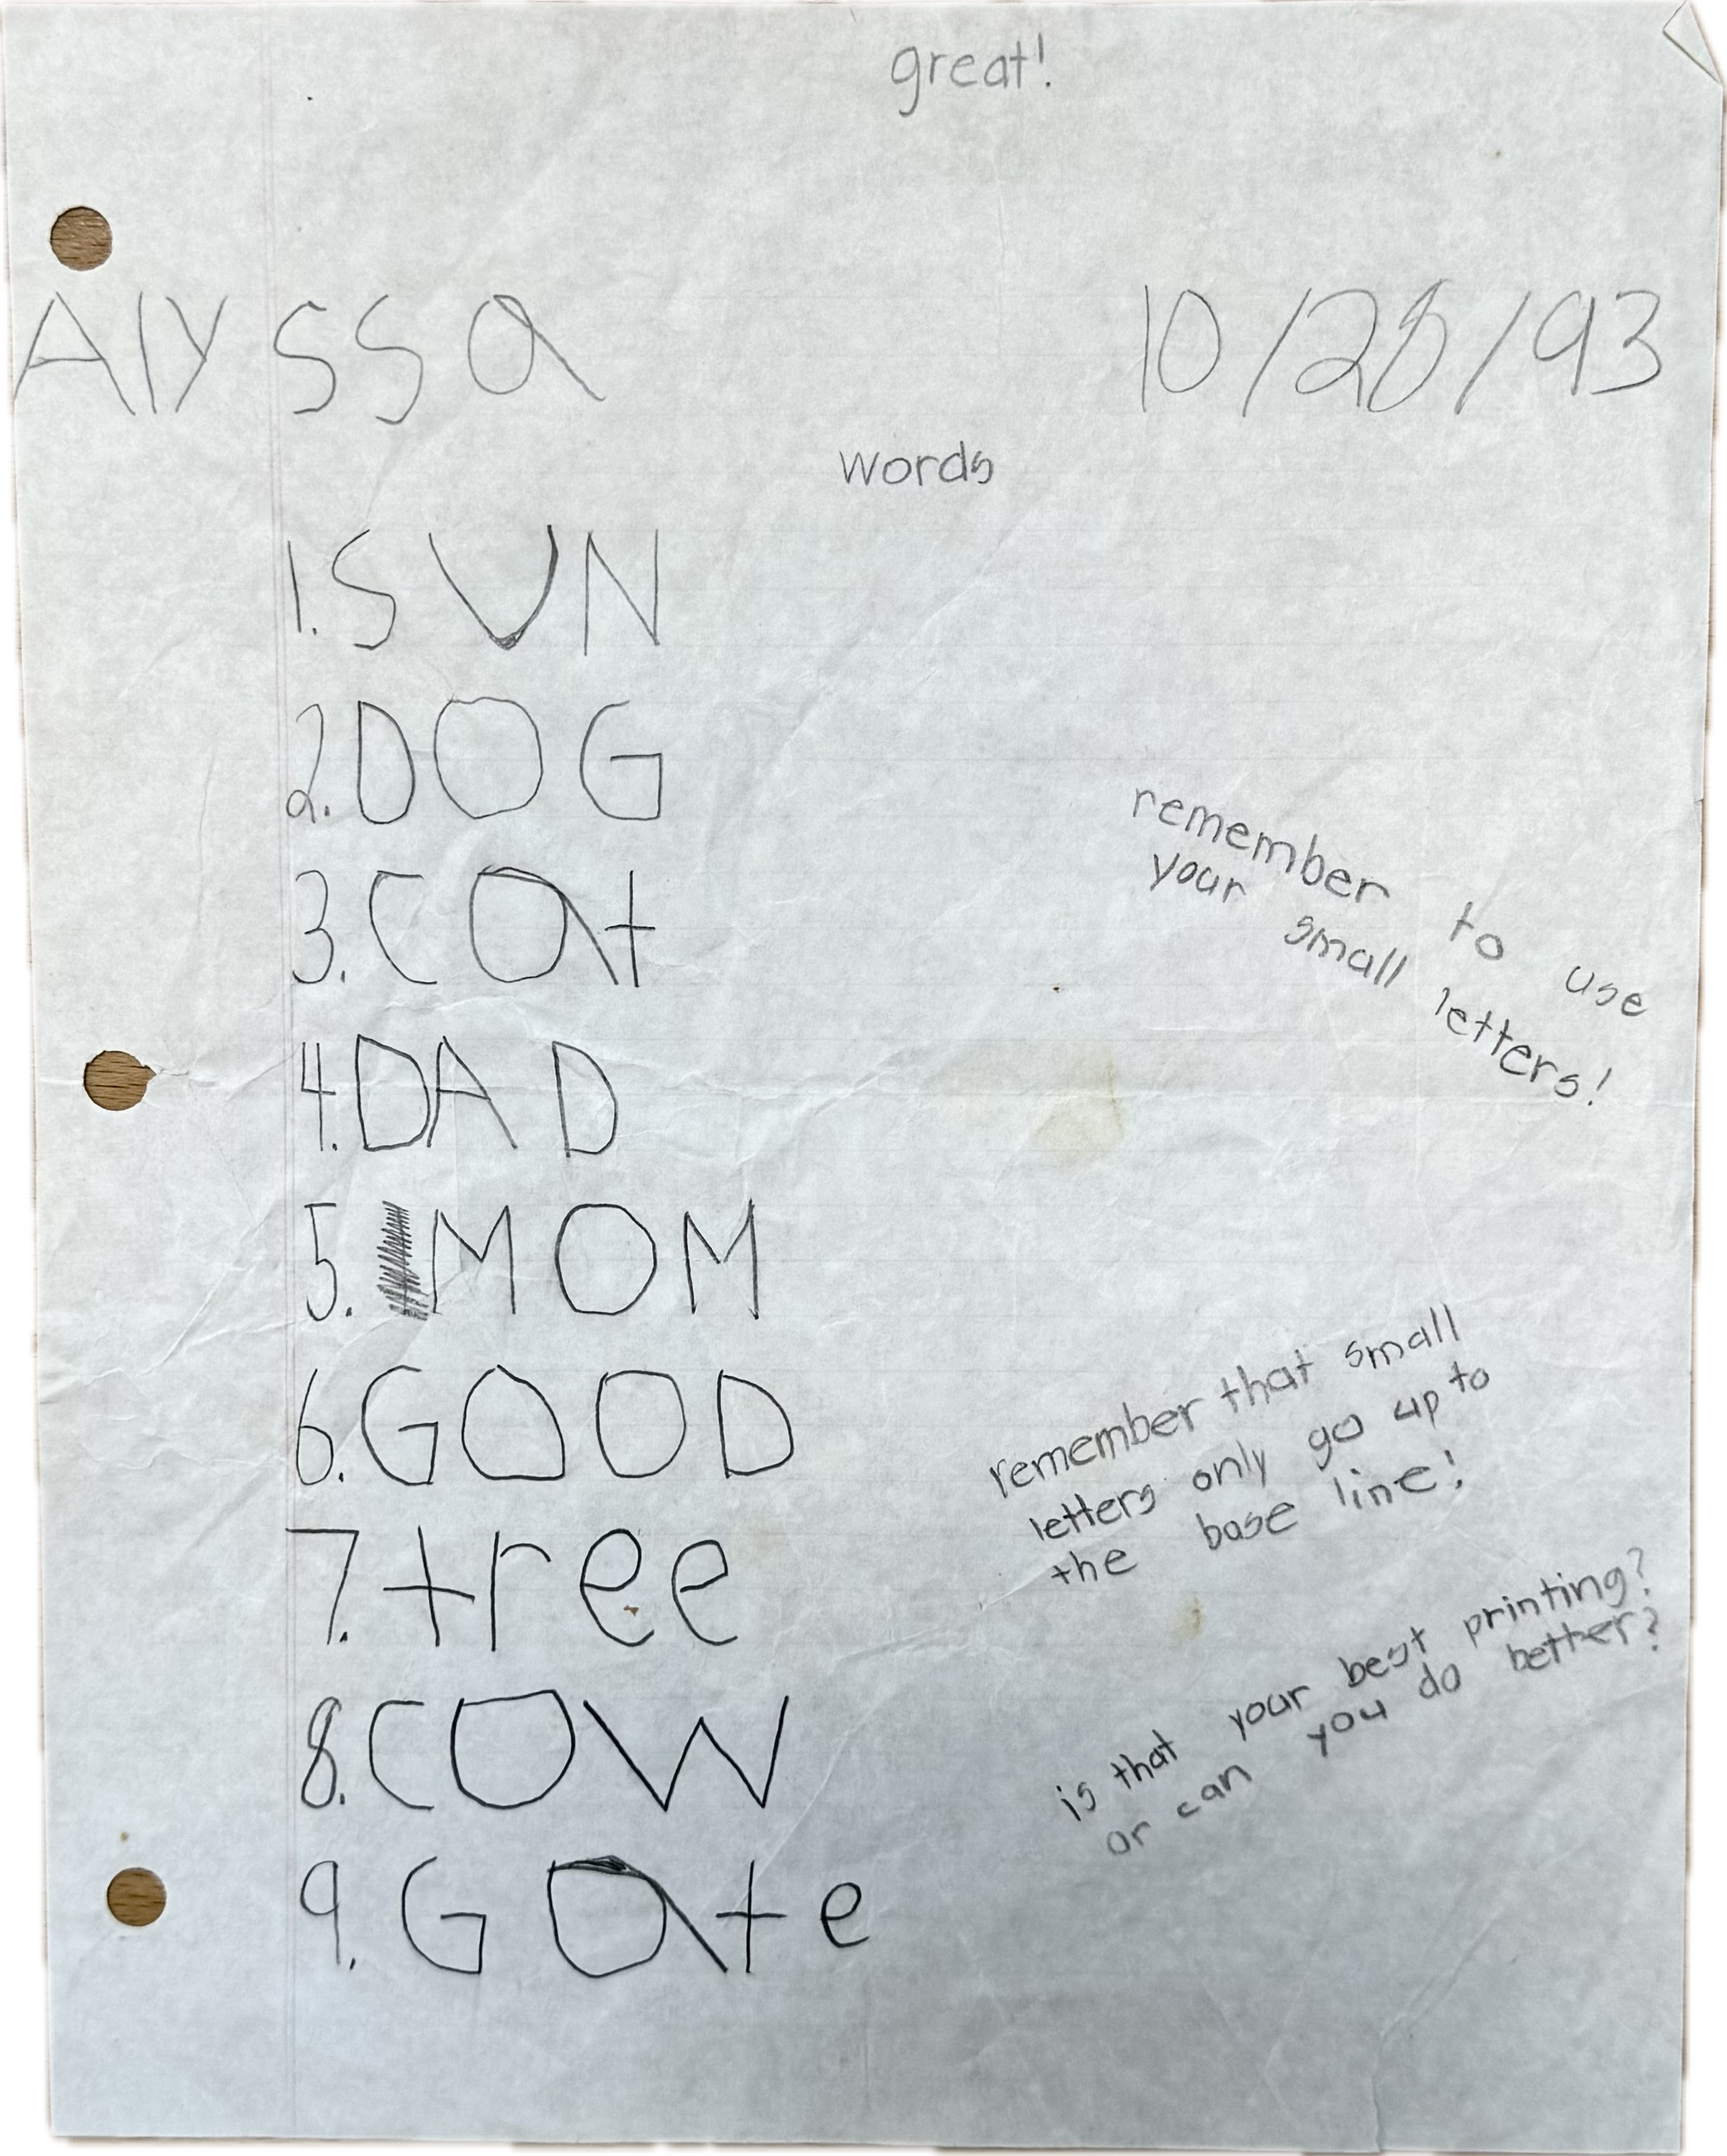 great!
Alyssa 10/28/93
words
1. SUN
2. DOG
3. cat
4. DAD
5. MOM
6. GOOD
7. tree
8. COW
9. Gate
remember to use
your small letters!
remember that small
letters only go up to
the base line!
is that your best printing?
or can you do better?